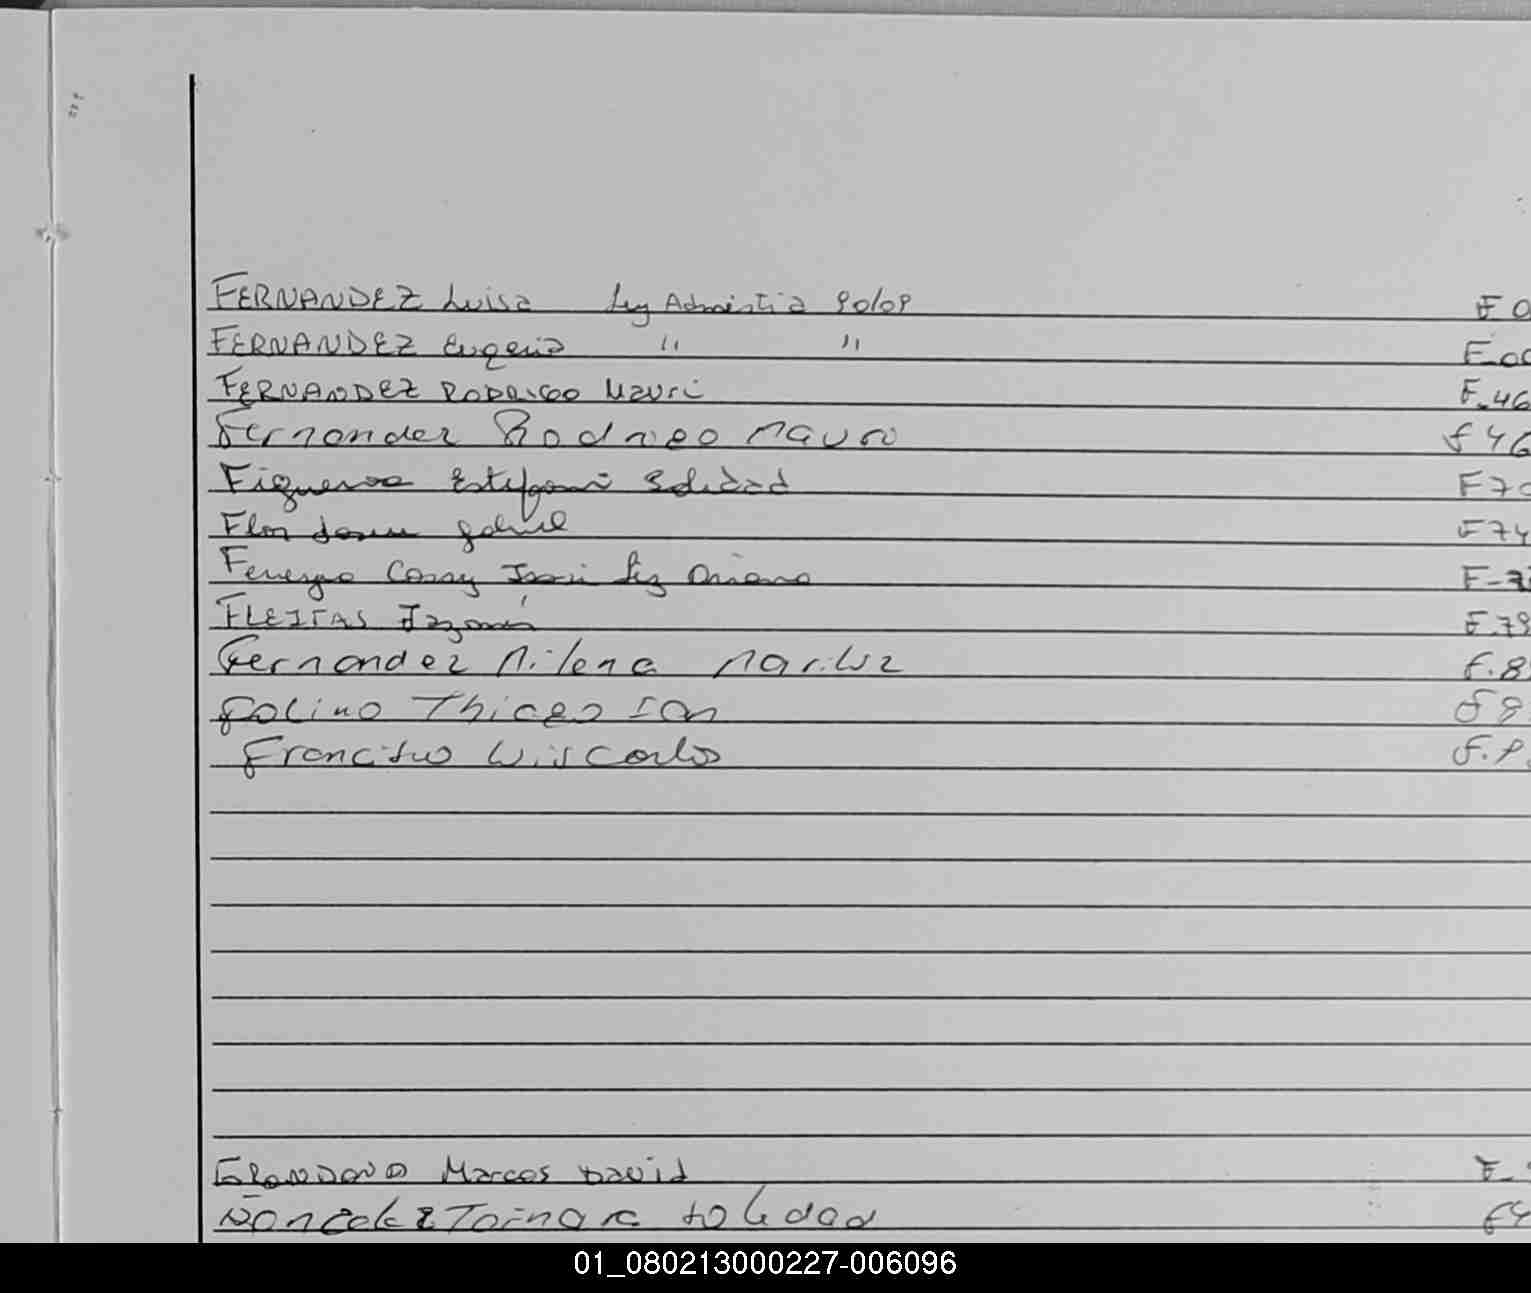 FERNANDEZ Luisa Ley Admistia 90/09 F 0
FERNANDEZ Eugenia " " F-00
FERNANDEZ RODRIGO Mauri F-46
Fernandez Rodrigo Mauro F 46
Figueroa Estefani Soledad F70
Flor Gabriel F74
José Luz Oriana F-7
FLEITAS Jazmín F.79
Fernandez Milena Mariluz F.8
Folino Thiago Ian F 8
Francisco Luis Carlos F.8
Marcos David F-
Soledad F4
01_080213000227-006096